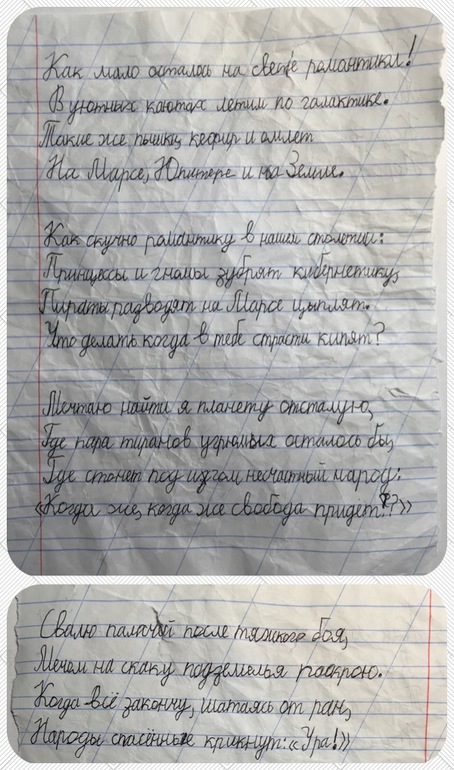 Как мало осталось на свете романтики!
В уютных каютах летим по галактике.
Такие же пышки, кефир и омлет
На Марсе, Юпитере и на Земле.
Как скучно романтику в нашем столетии:
Принцессы и гномы зубрят кибернетику,
Пираты разводят на Марсе цыплят.
Что делать когда в тебе страсти кипят?
Мечтаю найти я планету отсталую,
Где пара тиранов угрюмых осталось бы,
Где стонет под игом несчастный народ:
«Когда же, когда же свобода придет!?»
Свалю палачей после тяжкого боя,
Мечом на скаку подземелья раскрою.
Когда всё закончу, шатаясь от ран,
Народы спасённые крикнут: «Ура!»